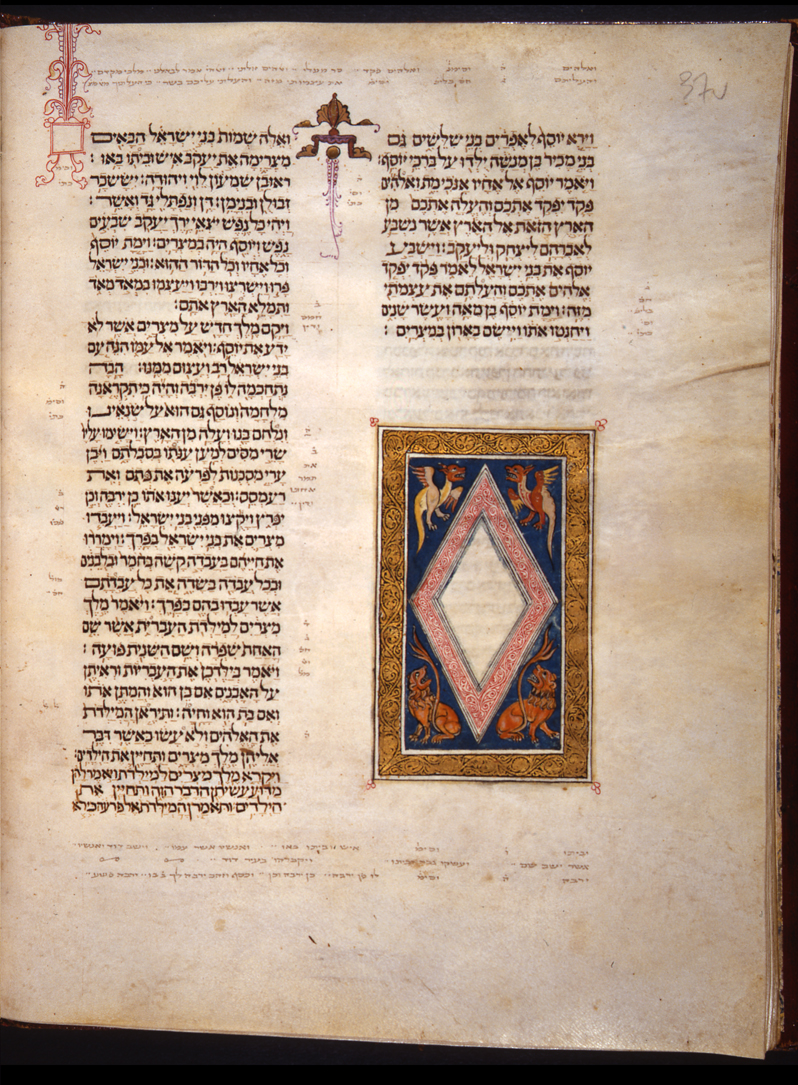 37v
וירא יוסף לאפרים בני שלישים גם
בני מכיר בן מנשה ילדו על ברכי יוסף׃
ויאמר יוסף אל אחיו אנכי מת ואלהים
פקד יפקד אתכם והעלה אתכם מן
הארץ הזאת אל הארץ אשר נשבע
לאברהם ליצחק וליעקב׃ וישבע
יוסף את בני ישראל לאמר פקד יפקד
אלהים אתכם והעלתם את עצמתי
מזה׃ וימת יוסף בן מאה ועשר שנים
ויחנטו אתו ויישם בארון במצרים׃
ואלה שמות בני ישראל הבאים
מצרימה את יעקב איש וביתו באו׃
ראובן שמעון לוי ויהודה׃ יששכר
זבולן ובנימן׃ דן ונפתלי גד ואשר׃
ויהי כל נפש יצאי ירך יעקב שבעים
נפש ויוסף היה במצרים׃ וימת יוסף
וכל אחיו וכל הדור ההוא׃ ובני ישראל
פרו וישרצו וירבו ויעצמו במאד מאד
ותמלא הארץ אתם׃
ויקם מלך חדש על מצרים אשר לא
ידע את יוסף׃ ויאמר אל עמו הנה עם
בני ישראל רב ועצום ממנו׃ הבה
נתחכמה לו פן ירבה והיה כי תקראנה
מלחמה ונוסף גם הוא על שנאינו
ונלחם בנו ועלה מן הארץ׃ וישימו עליו
שרי מסים למען ענתו בסבלתם ויבן
ערי מסכנות לפרעה את פתם ואת
רעמסס׃ וכאשר יענו אתו כן ירבה וכן
יפרץ ויקצו מפני בני ישראל׃ ויעבדו
מצרים את בני ישראל בפרך׃ וימררו
את חייהם בעבדה קשה בחמר ובלבנים
ובכל עבדה בשדה את כל עבדתם
אשר עבדו בהם בפרך׃ ויאמר מלך
מצרים למילדת העברית אשר שם
האחת שפרה ושם השנית פועה׃
ויאמר בילדכן את העבריות וראיתן
על האבנים אם בן הוא והמתן אתו
ואם בת הוא וחיה׃ ותיראן המילדת
את האלהים ולא עשו כאשר דבר
אליהן מלך מצרים ותחיין את הילדים׃
ויקרא מלך מצרים למילדת ויאמר להן
מדוע עשיתן הדבר הזה ותחיין את
הילדים׃ ותאמרן המילדת אל פרעה כי לא